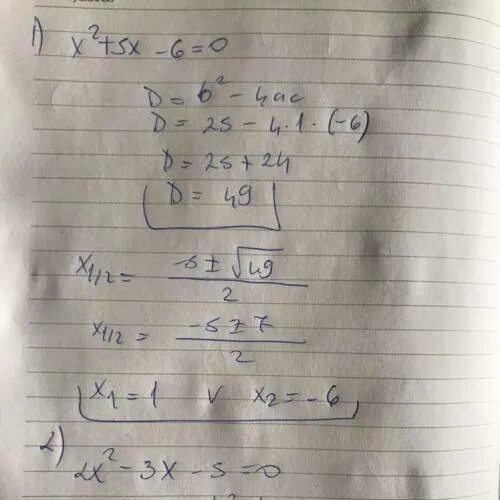 1) x²+5x -6=0
D = b² - 4ac
D = 25 - 4·1·(-6)
D = 25 + 24
D = 49
x1/2 = (-5 ± √49)/2
x1/2 = (-5 ± 7)/2
x1 = 1 v x2 = -6
2)
2x² - 3x - 5 = 0